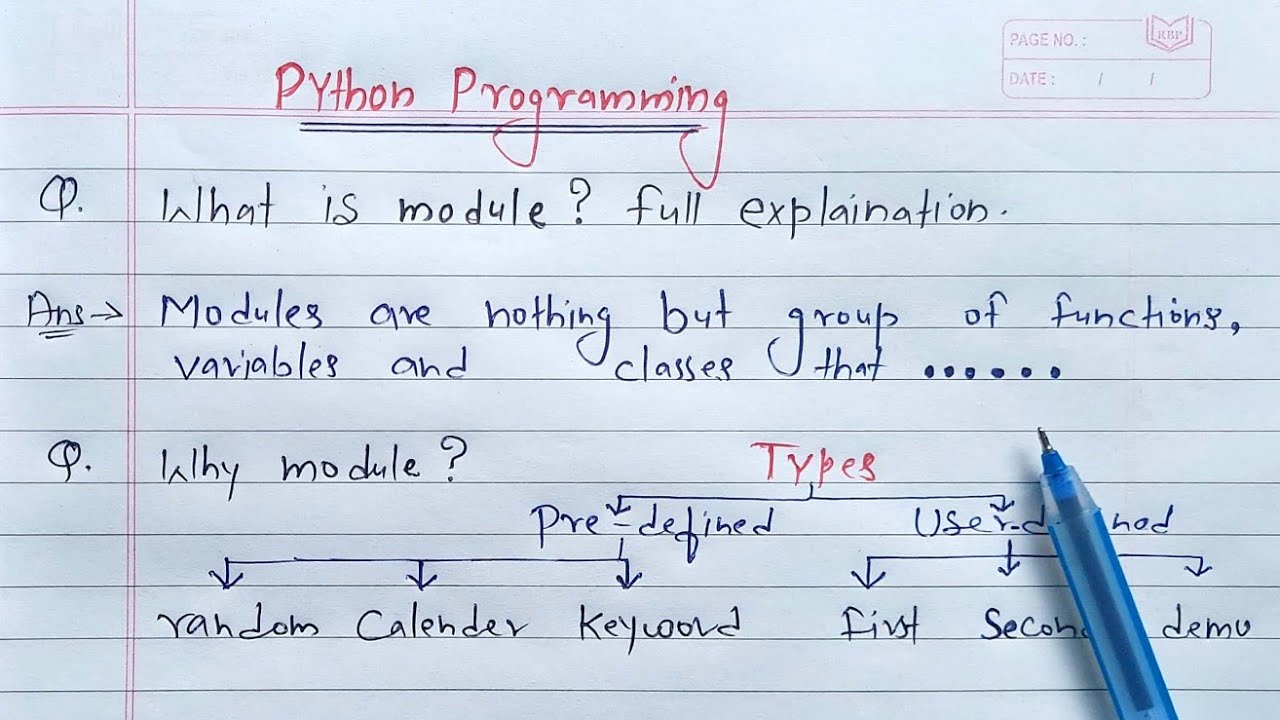 PAGE NO. :
RBP
DATE : / /
Python Programming
Q. What is module? full explaination.
Ans→ Modules are nothing but group of functions,
variables and classes that ......
Q. Why module? Types
Pre-defined
random Calender Keyword first demo